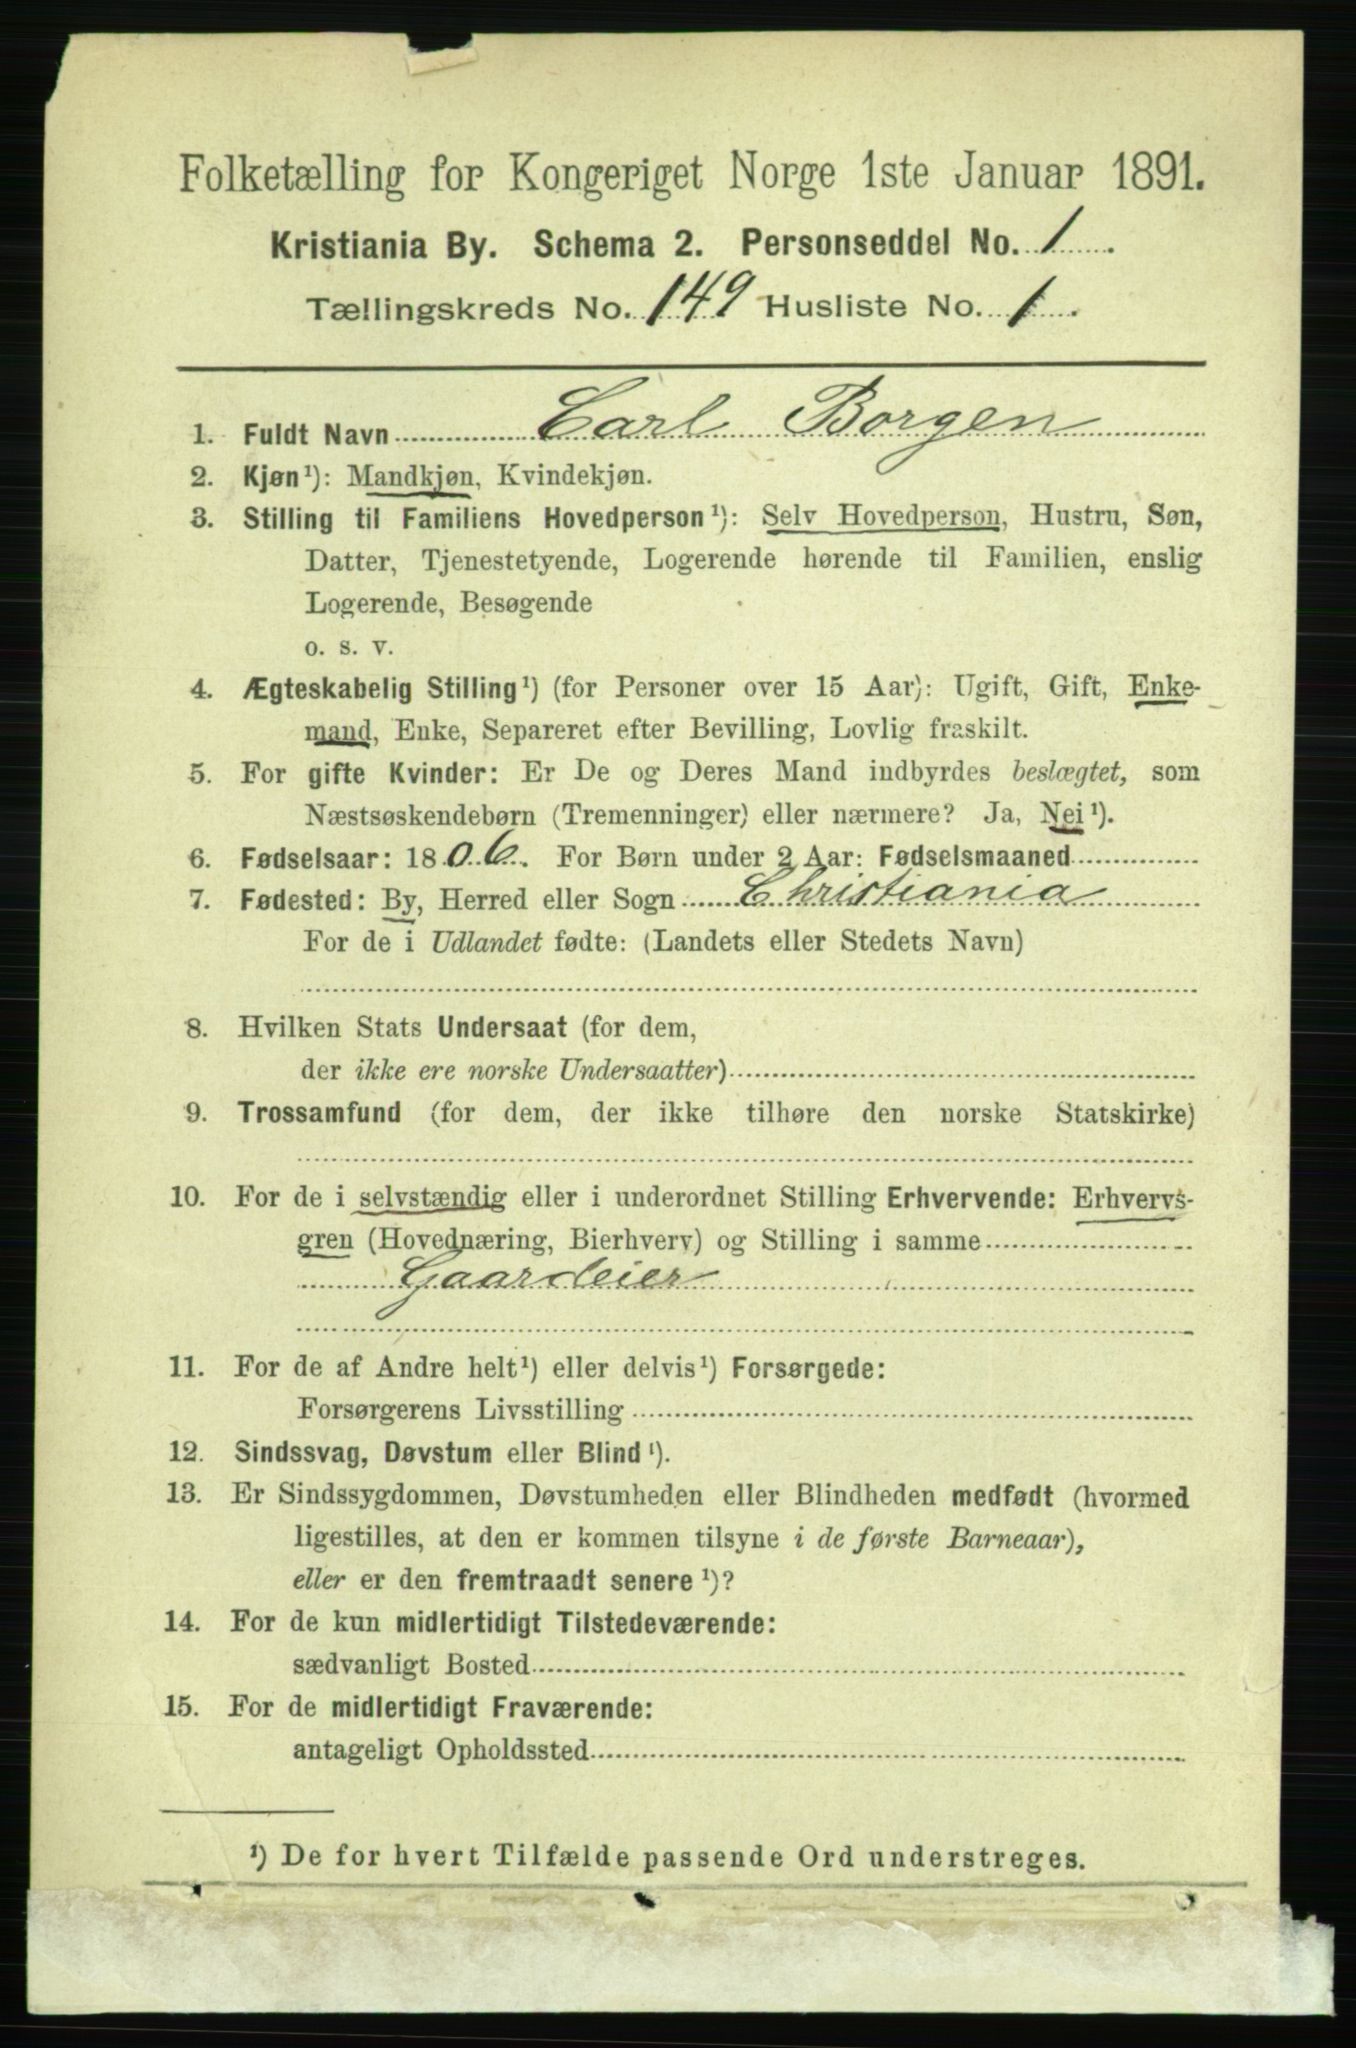 Folketælling for Kongeriget Norge 1ste Januar 1891.
Kristiania By. Schema 2. Personseddel No. 1.
Tællingskreds No. 149 Husliste No. 1.
1. Fuldt Navn Carl Borgen
2. Kjøn¹): Mandkjøn, Kvindekjøn.
3. Stilling til Familiens Hovedperson¹): Selv Hovedperson, Hustru, Søn,
Datter, Tjenestetyende, Logerende hørende til Familien, enslig
Logerende, Besøgende
o. s. v.
4. Ægteskabelig Stilling¹) (for Personer over 15 Aar): Ugift, Gift, Enke-
mand, Enke, Separeret efter Bevilling, Lovlig fraskilt.
5. For gifte Kvinder: Er De og Deres Mand indbyrdes beslægtet, som
Næstsøskendebørn (Tremenninger) eller nærmere? Ja, Nei¹).
6. Fødselsaar: 1806. For Børn under 2 Aar: Fødselsmaaned
7. Fødested: By, Herred eller Sogn Christiania
For de i Udlandet fødte: (Landets eller Stedets Navn)
8. Hvilken Stats Undersaat (for dem,
der ikke ere norske Undersaatter)
9. Trossamfund (for dem, der ikke tilhøre den norske Statskirke)
10. For de i selvstændig eller i underordnet Stilling Erhvervende: Erhvervs-
gren (Hovednæring, Bierhverv) og Stilling i samme
Gaardeier
11. For de af Andre helt¹) eller delvis¹) Forsørgede:
Forsørgerens Livsstilling
12. Sindssvag, Døvstum eller Blind¹).
13. Er Sindssygdommen, Døvstumheden eller Blindheden medfødt (hvormed
ligestilles, at den er kommen tilsyne i de første Barneaar),
eller er den fremtraadt senere¹)?
14. For de kun midlertidigt Tilstedeværende:
sædvanligt Bosted
15. For de midlertidigt Fraværende:
antageligt Opholdssted
¹) De for hvert Tilfælde passende Ord understreges.